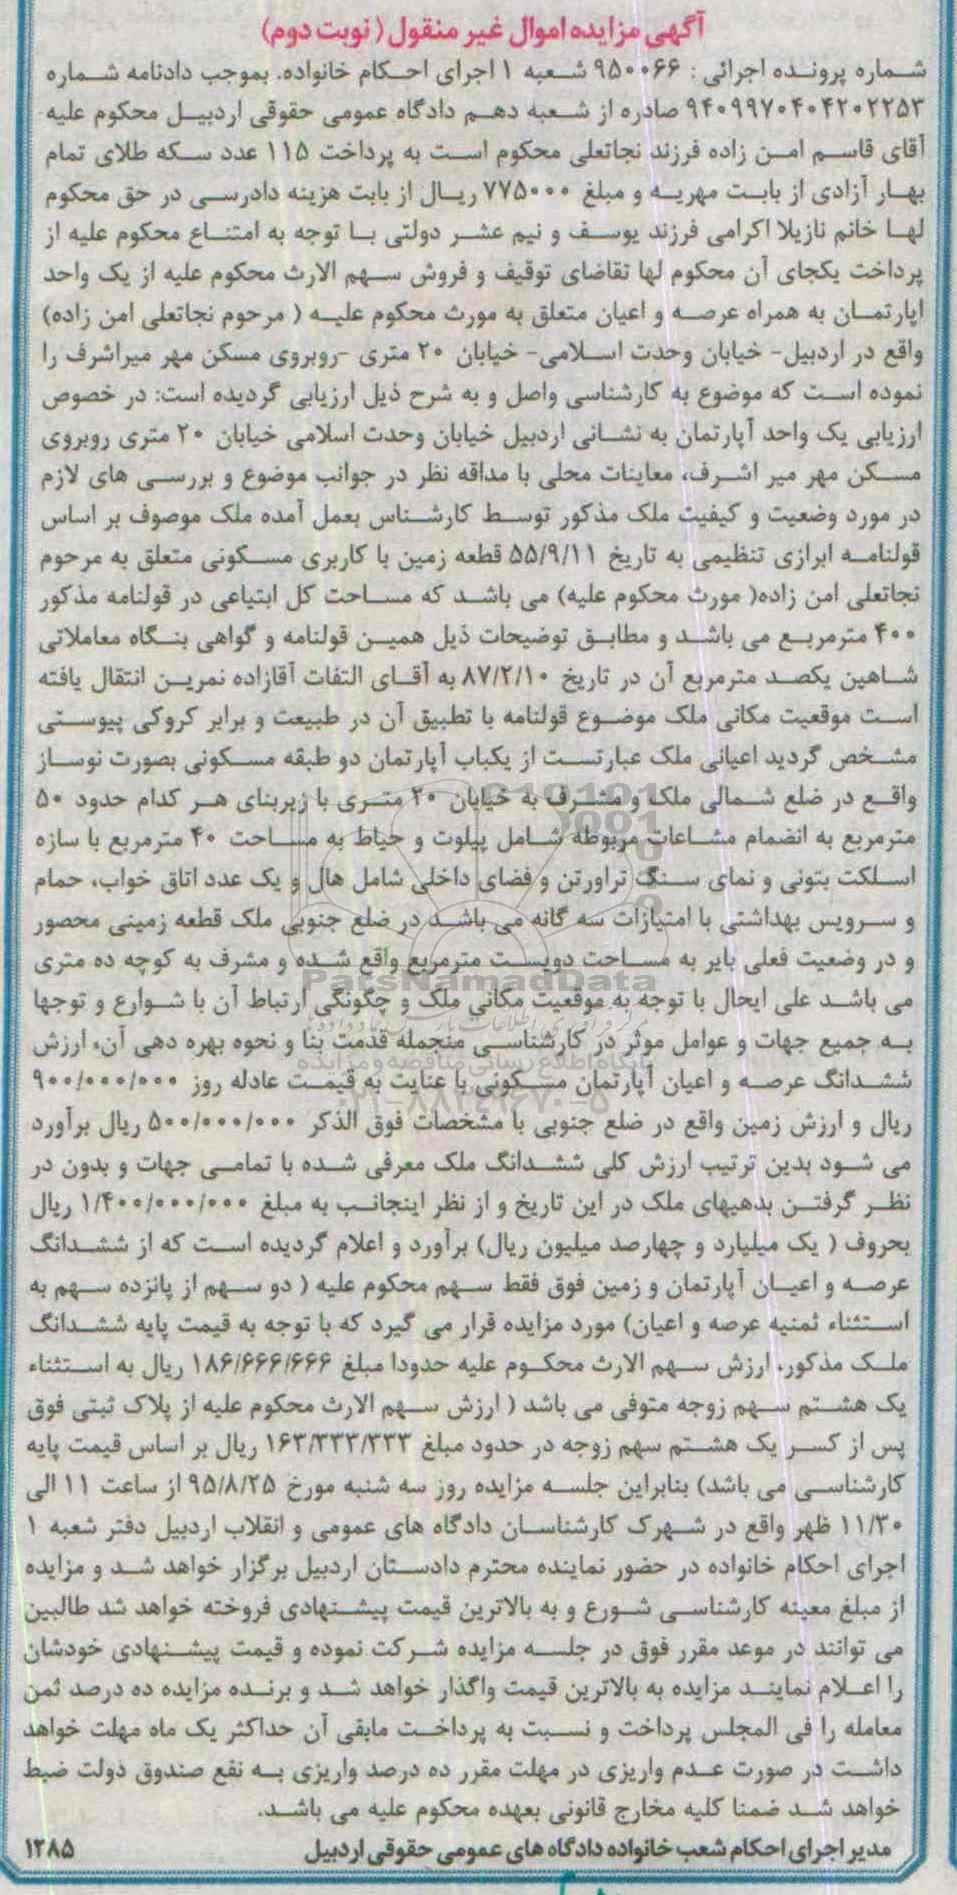 آگهی مزایده اموال غیر منقول ( نوبت دوم)
شماره پرونده اجرائی : ۹۵۰۰۶۶ شعبه ۱ اجرای احکام خانواده. بموجب دادنامه شماره
۹۴۰۹۹۷۰۴۰۴۲۰۲۲۵۳ صادره از شعبه دهم دادگاه عمومی حقوقی اردبیل محکوم علیه
آقای قاسم امن زاده فرزند نجاتعلی محکوم است به پرداخت ۱۱۵ عدد سکه طلای تمام
بهار آزادی از بابت مهریه و مبلغ ۷۷۵۰۰۰ ریال از بابت هزینه دادرسی در حق محکوم
لها خانم نازیلا اکرامی فرزند یوسف و نیم عشر دولتی با توجه به امتناع محکوم علیه از
پرداخت یکجای آن محکوم لها تقاضای توقیف و فروش سهم الارث محکوم علیه از یک واحد
اپارتمان به همراه عرصه و اعیان متعلق به مورث محکوم علیه ( مرحوم نجاتعلی امن زاده)
واقع در اردبیل- خیابان وحدت اسلامی- خیابان ۲۰ متری -روبروی مسکن مهر میراشرف را
نموده است که موضوع به کارشناسی واصل و به شرح ذیل ارزیابی گردیده است: در خصوص
ارزیابی یک واحد آپارتمان به نشانی اردبیل خیابان وحدت اسلامی خیابان ۲۰ متری روبروی
مسکن مهر میر اشرف، معاینات محلی با مداقه نظر در جوانب موضوع و بررسی های لازم
در مورد وضعیت و کیفیت ملک مذکور توسط کارشناس بعمل آمده ملک موصوف بر اساس
قولنامه ابرازی تنظیمی به تاریخ ۵۵/۹/۱۱ قطعه زمین با کاربری مسکونی متعلق به مرحوم
نجاتعلی امن زاده( مورث محکوم علیه) می باشد که مساحت کل ابتیاعی در قولنامه مذکور
۴۰۰ مترمربع می باشد و مطابق توضیحات ذیل همین قولنامه و گواهی بنگاه معاملاتی
شاهین یکصد مترمربع آن در تاریخ ۸۷/۲/۱۰ به آقای التفات آقازاده نمرین انتقال یافته
است موقعیت مکانی ملک موضوع قولنامه با تطبیق آن در طبیعت و برابر کروکی پیوستی
مشخص گردید اعیانی ملک عبارتست از یکباب آپارتمان دو طبقه مسکونی بصورت نوساز
واقع در ضلع شمالی ملک و مشرف به خیابان ۲۰ متری با زیربنای هر کدام حدود ۵۰
مترمربع به انضمام مشاعات مربوطه شامل پیلوت و حیاط به مساحت ۴۰ مترمربع با سازه
اسلکت بتونی و نمای سنگ تراورتن و فضای داخلی شامل هال و یک عدد اتاق خواب، حمام
و سرویس بهداشتی با امتیازات سه گانه می باشد در ضلع جنوبی ملک قطعه زمینی محصور
و در وضعیت فعلی بایر به مساحت دویست مترمربع واقع شده و مشرف به کوچه ده متری
ParsNamadData
می باشد علی ایحال با توجه به موقعیت مکانی ملک و چگونگی ارتباط آن با شوارع و توجها
به جمیع جهات و عوامل موثر در کارشناسی منجمله قدمت بنا و نحوه بهره دهی آن، ارزش
پایگاه اطلاع رسانی مناقصه و مزایده
ششدانگ عرصه و اعیان آپارتمان مسکونی با عنایت به قیمت عادله روز ۹۰۰/۰۰۰/۰۰۰
۰۲۱-۸۸۳۴۹۶۷۰-۵
ریال و ارزش زمین واقع در ضلع جنوبی با مشخصات فوق الذکر ۵۰۰/۰۰۰/۰۰۰ ریال برآورد
می شود بدین ترتیب ارزش کلی ششدانگ ملک معرفی شده با تمامی جهات و بدون در
نظر گرفتن بدهیهای ملک در این تاریخ و از نظر اینجانب به مبلغ ۱/۴۰۰/۰۰۰/۰۰۰ ریال
بحروف ( یک میلیارد و چهارصد میلیون ریال) برآورد و اعلام گردیده است که از ششدانگ
عرصه و اعیان آپارتمان و زمین فوق فقط سهم محکوم علیه ( دو سهم از پانزده سهم به
استثناء ثمنیه عرصه و اعیان) مورد مزایده قرار می گیرد که با توجه به قیمت پایه ششدانگ
ملک مذکور، ارزش سهم الارث محکوم علیه حدودا مبلغ ۱۸۶/۶۶۶/۶۶۶ ریال به استثناء
یک هشتم سهم زوجه متوفی می باشد ( ارزش سهم الارث محکوم علیه از پلاک ثبتی فوق
پس از کسر یک هشتم سهم زوجه در حدود مبلغ ۱۶۳/۳۳۳/۳۳۳ ریال بر اساس قیمت پایه
کارشناسی می باشد) بنابراین جلسه مزایده روز سه شنبه مورخ ۹۵/۸/۲۵ از ساعت ۱۱ الی
۱۱/۳۰ ظهر واقع در شهرک کارشناسان دادگاه های عمومی و انقلاب اردبیل دفتر شعبه ۱
اجرای احکام خانواده در حضور نماینده محترم دادستان اردبیل برگزار خواهد شد و مزایده
از مبلغ معینه کارشناسی شورع و به بالاترین قیمت پیشنهادی فروخته خواهد شد طالبین
می توانند در موعد مقرر فوق در جلسه مزایده شرکت نموده و قیمت پیشنهادی خودشان
را اعلام نمایند مزایده به بالاترین قیمت واگذار خواهد شد و برنده مزایده ده درصد ثمن
معامله را فی المجلس پرداخت و نسبت به پرداخت مابقی آن حداکثر یک ماه مهلت خواهد
داشت در صورت عدم واریزی در مهلت مقرر ده درصد واریزی به نفع صندوق دولت ضبط
خواهد شد ضمنا کلیه مخارج قانونی بعهده محکوم علیه می باشد.
مدیر اجرای احکام شعب خانواده دادگاه های عمومی حقوقی اردبیل ۱۲۸۵